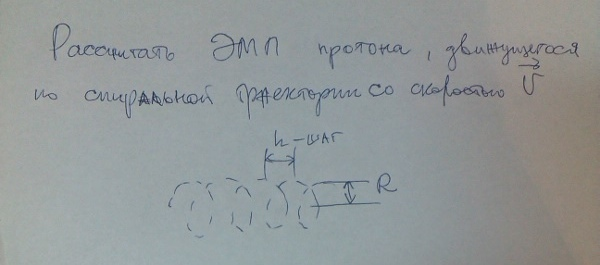 Рассчитать ЭМП протона, движущегося
по спиральной траектории со скоростью v
h - шаг
R